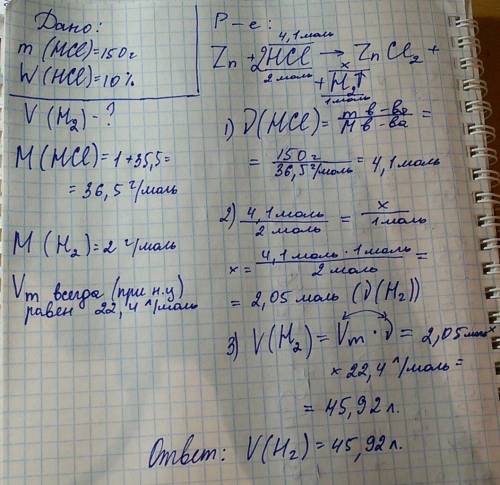 Дано:
m (HCl) = 150 г
W (HCl) = 10%
V (H₂) - ?
M (HCl) = 1 + 35,5 =
= 36,5 г/моль
M (H₂) = 2 г/моль
Vm всегда (при н.у)
равен 22,4 л/моль
Р-е:
4,1 моль
Zn + 2HCl → ZnCl₂ +
2 моль
x
+ H₂↑
1 моль
1) ν(HCl) = m в-ва / M в-ва =
= 150 г / 36,5 г/моль = 4,1 моль
2) 4,1 моль / 2 моль = x / 1 моль
x = 4,1 моль · 1 моль / 2 моль =
= 2,05 моль (ν(H₂))
3) V(H₂) = Vm · ν = 2,05 моль ×
× 22,4 л/моль =
= 45,92 л.
Ответ: V(H₂) = 45,92 л.